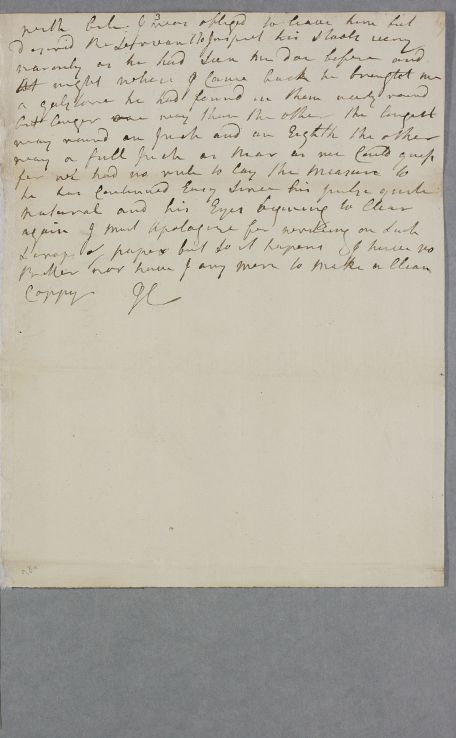 with bile. I was obliged to leave him but
desired the Servant to Inspect his Stools very
narowly as he had Seen me doe before and
At night when I Came back he brought me
a galstone he had found in them nearly round
but longer one way then the other the longest
way round an Inch and an Eighth the other
way a full Inch as near as we Could guess
for we had no rule to lay the measure to
he has Continued Easy Since his pulse quite
natural and his Eyes begining to Clear
again I must Apologise for writeing on Such
Scraps of paper but So it hapens I have no
Better nor have I any more to make a Clean
Coppy JC